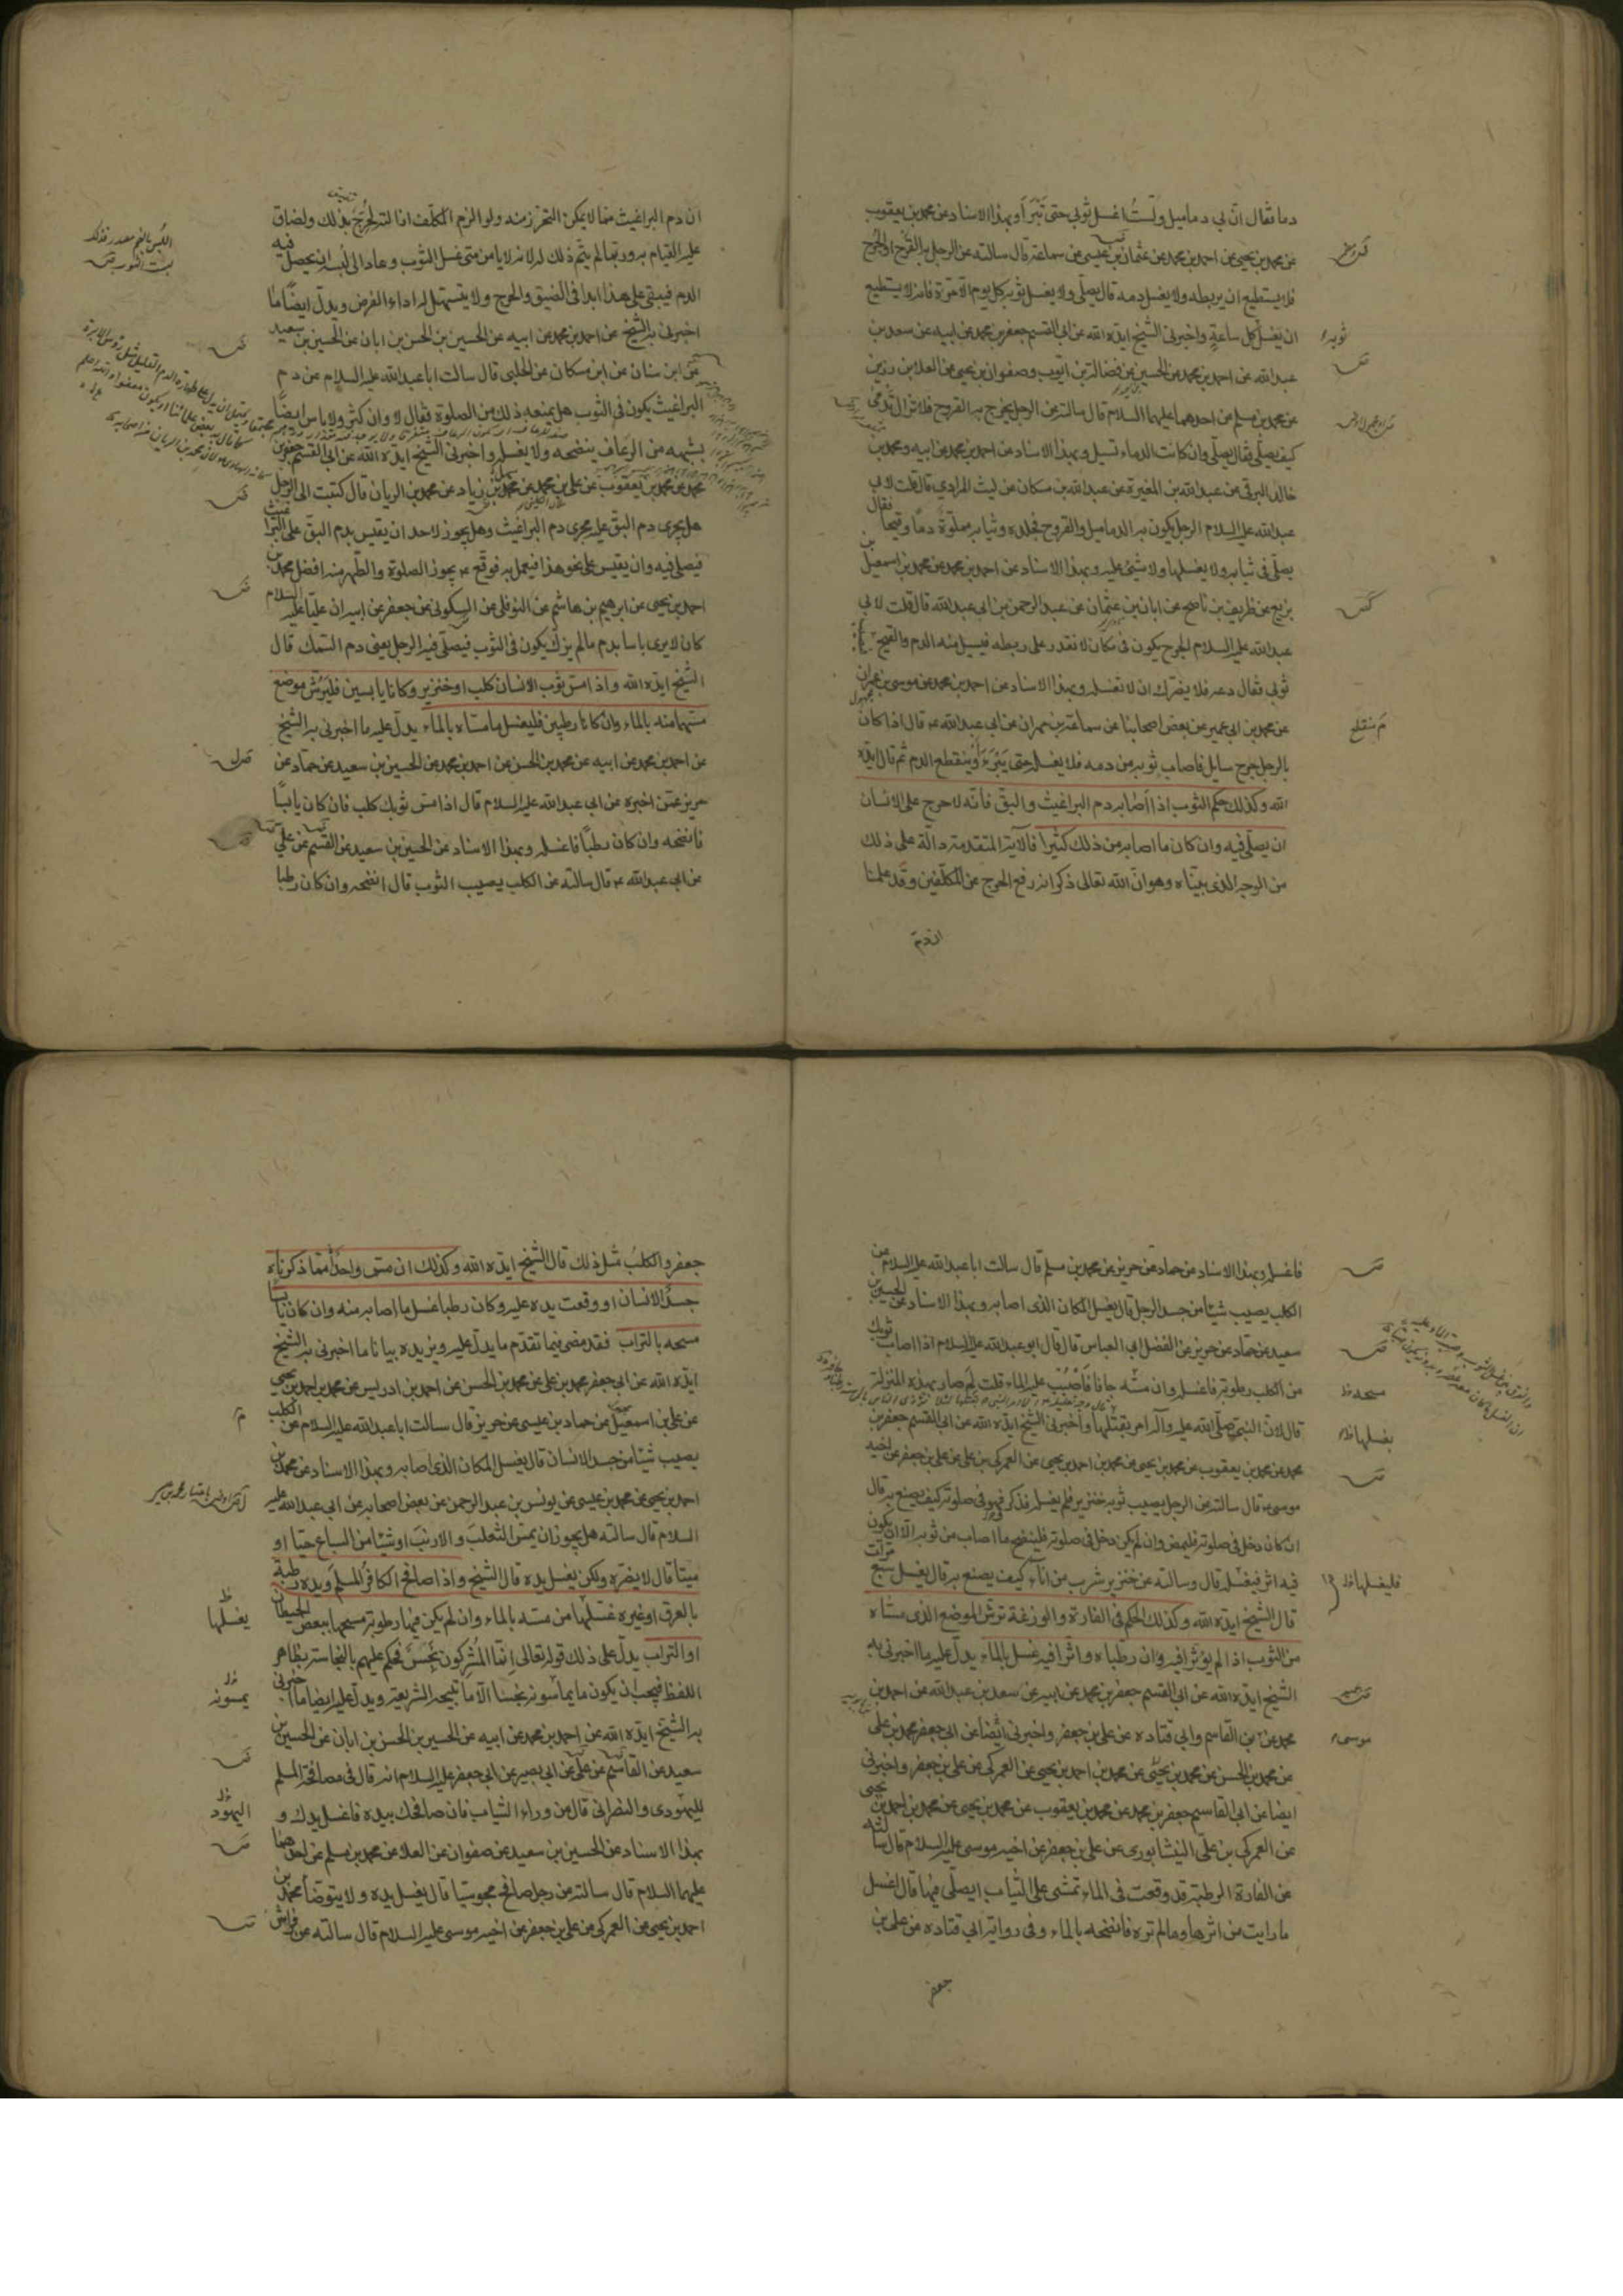 دما فقال ان بي دماميل ولست اغسل ثوبي حتى تبرأ وبهذا الاسناد عن محمد بن يعقوب
عن محمد بن يحيى عن احمد بن محمد عن عثمان بن عيسى عن سماعة قال سالته عن الرجل به القرح او الجرح
فلا يستطيع ان يربطه ولا يغسل دمه قال يصلي ولا يغسل ثوبه كل يوم الا مرة فانه لا يستطيع
ان يغسل كل ساعة واخبرني الشيخ ايده الله عن ابي القسم جعفر بن محمد عن ابيه عن سعد بن
عبد الله عن احمد بن محمد عن الحسين عن فضالة بن ايوب وصفوان بن يحيى عن العلا بن رزين
عن محمد بن مسلم عن احدهما عليهما السلام قال سالته عن الرجل يخرج به القروح فلا تزال تدمى
كيف يصلي فقال يصلي وان كانت الدماء تسيل وبهذا الاسناد عن احمد بن محمد عن ابيه ومحمد بن
خالد البرقي عن عبد الله بن المغيرة عن عبد الله بن مسكان عن ليث المرادي قال قلت لابي
عبد الله عليه السلام الرجل يكون به الدماميل والقروح فجلده وثيابه مملوة دما وقيحا فقال
يصلي في ثيابه ولا يغسلها ولا شيء عليه وبهذا الاسناد عن احمد بن محمد عن محمد بن اسمعيل بن
بزيع عن ظريف بن ناصح عن ابان بن عثمان عن عبد الرحمن بن ابي عبد الله قال قلت لابي
عبد الله عليه السلام الجرح يكون في مكان لا نقدر على ربطه فيسيل منه الدم والقيح
ثوبي فقال دعه فلا يضرك ان لا تغسله وبهذا الاسناد عن احمد بن محمد عن موسى بن عمران
عن محمد بن ابي عمير عن بعض اصحابنا عن سماعة بن مهران عن ابي عبد الله ع قال اذا كان
بالرجل جرح سايل فاصاب ثوبه من دمه فلا يغسله حتى يبرء وينقطع الدم ثم قال ايده
الله وكذلك حكم الثوب اذا اصابه دم البراغيث والبق فانه لا حرج على الانسان
ان يصلي فيه وان كان ما اصابه من ذلك كثيرا فالآية المتقدمة دالة على ذلك
من الوجه الذي بيناه وهو ان الله تعالى ذكر انه رفع الحرج عن المكلفين وقد علمنا
ان دم
ان دم البراغيث مما لا يمكن التحرز منه ولو الزم المكلف ازالته لحرج بذلك ولضاق
عليه القيام به وربما لم يتم ذلك له لانه لا يامن متى غسل الثوب وعاد الى لبسه ان يحصل فيه
الدم فيبقى على هذا ابدا في الضيق والحرج ولا يتسهل له اداء الفرض ويدل ايضا ما
اخبرني به الشيخ عن احمد بن محمد عن ابيه عن الحسين بن الحسن بن ابان عن الحسين بن سعيد
عن ابن سنان عن ابن مسكان عن الحلبي قال سالت ابا عبد الله عليه السلام عن دم
البراغيث يكون في الثوب هل يمنعه ذلك من الصلوة فقال لا وان كثر ولا باس ايضا
بشبهه من الرعاف ينضحه ولا يغسله واخبرني الشيخ ايده الله عن ابي القسم جعفر بن
محمد عن محمد بن يعقوب عن علي بن محمد عن محمد بن زياد عن محمد بن الريان قال كتبت الى الرجل
هل يجرى دم البق عليه مجرى دم البراغيث وهل يجوز لاحد ان يقيس بدم البق على البراغيث
فيصلي فيه وان يقيس على نحو هذا فيعمل به فوقع ع يجوز الصلوة والطهر منه افضل محمد بن
احمد بن يحيى عن ابرهيم بن هاشم عن النوفلي عن السكوني عن جعفر عن ابيه ان عليا عليه السلام
كان لا يرى باسا بدم ما لم يزك يكون في الثوب فيصلي فيه الرجل يعني دم السمك قال
الشيخ ايده الله واذا مس ثوب الانسان كلب او خنزير وكانا يابسين فليرش موضع
مسهما منه بالماء وان كانا رطبين فليغسل ما مساه بالماء يدل عليه ما اخبرني به الشيخ
عن احمد بن محمد عن ابيه عن محمد بن الحسن عن احمد بن محمد عن الحسين بن سعيد عن حماد عن
حريز عمن اخبره عن ابي عبد الله عليه السلام قال اذا مس ثوبك كلب فان كان يابسا
فانضحه وان كان رطبا فاغسله وبهذا الاسناد عن الحسين بن سعيد عن القسم عن علي
عن ابي عبد الله ع قال سالته عن الكلب يصيب الثوب قال انضحه وان كان رطبا
فاغسله وبهذا الاسناد عن حماد عن حريز عن محمد بن مسلم قال سالت ابا عبد الله عليه السلام عن
الكلب يصيب شيئا من جسد الرجل قال يغسل المكان الذي اصابه وبهذا الاسناد عن الحسين بن
سعيد عن حماد عن حريز عن الفضل ابي العباس قال قال ابو عبد الله عليه السلام اذا اصاب ثوبك
من الكلب رطوبة فاغسله وان مسه جافا فاصبب عليه الماء قلت لم صار بهذه المنزلة
قال لان النبي صلى الله عليه وآله امر بقتلها واخبرني الشيخ ايده الله عن ابي القسم جعفر بن
محمد عن محمد بن يعقوب عن محمد بن يحيى عن محمد بن احمد بن يحيى عن العمركي بن علي عن علي بن جعفر عن اخيه
موسى ع قال سالته عن الرجل يصيب ثوبه خنزير فلم يغسله فذكر فهو في صلوته كيف يصنع به قال
ان كان دخل في صلوته فليمض وان لم يكن دخل في صلوته فلينضح ما اصاب من ثوبه الا ان يكون
فيه اثر فيغسله قال وسالته عن خنزير شرب من اناء كيف يصنع به قال يغسل سبع مرات
قال الشيخ ايده الله وكذلك الحكم في الفارة والوزغة ترش الموضع الذي مساه
من الثوب اذا لم يؤثر افيه وان رطباه واثرا فيه غسل بالماء يدل عليه ما اخبرني به
الشيخ ايده الله عن ابي القسم جعفر بن محمد عن ابيه عن سعد بن عبد الله عن احمد بن
محمد عن بن القاسم وابي قتادة عن علي بن جعفر واخبرني ايضا عن ابي جعفر محمد بن علي
عن محمد بن الحسن عن محمد بن يحيى عن محمد بن احمد بن يحيى عن العمركي عن علي بن جعفر واخبرني
ايضا عن ابي القاسم جعفر بن محمد عن محمد بن يعقوب عن محمد بن يحيى عن محمد بن احمد بن يحيى
عن العمركي بن علي النيشابوري عن علي بن جعفر عن اخيه موسى عليه السلام قال سالته
عن الفارة الرطبة قد وقعت في الماء تمشي على الثياب ايصلى فيها قال اغسل
ما رايت من اثرها وما لم تره فانضحه بالماء وفي رواية ابي قتادة عن علي بن
جعفر
جعفر والكلب مثل ذلك قال الشيخ ايده الله وكذلك ان مس واحد مما ذكرناه
جسد الانسان او وقعت يده عليه وكان رطبا غسل ما اصابه منه وان كان يابسا
مسحه بالتراب فقد مضى فيما تقدم ما يدل عليه ويزيده بيانا ما اخبرني به الشيخ
ايده الله عن ابي جعفر محمد بن علي عن محمد بن الحسن عن احمد بن ادريس عن محمد بن احمد بن يحيى
عن علي بن اسمعيل عن حماد بن عيسى عن حريز قال سالت ابا عبد الله عليه السلام عن الكلب
يصيب شيئا من جسد الانسان قال يغسل المكان الذي اصابه وبهذا الاسناد عن محمد بن
احمد بن يحيى عن محمد بن عيسى عن يونس بن عبد الرحمن عن بعض اصحابه عن ابي عبد الله عليه
السلام قال سالته هل يجوز ان يمس الثعلب والارنب او شيئا من السباع حيا او
ميتا قال لا يضره ولكن يغسل يده قال الشيخ واذا صافح الكافر المسلم ويده رطبة
بالعرق او غيره غسلها من مسه بالماء وان لم يكن فيها رطوبة مسحها ببعض الحيطان
او التراب يدل على ذلك قوله تعالى انما المشركون نجس فحكم عليهم بالنجاسة بظاهر
اللفظ فيجب ان يكون ما يماسونه نجسا الا ما تبيحه الشريعة ويدل عليه ايضا ما اخبرني
به الشيخ ايده الله عن احمد بن محمد عن ابيه عن الحسين بن الحسن بن ابان عن الحسين بن
سعيد عن القاسم عن علي عن ابي بصير عن ابي جعفر عليه السلام انه قال في مصافحة المسلم
لليهودي والنصراني قال من وراء الثياب فان صافحك بيده فاغسل يدك و
بهذا الاسناد عن الحسين بن سعيد عن صفوان عن العلا عن محمد بن مسلم عن احدهما
عليهما السلام قال سالته عن رجل صافح مجوسيا قال يغسل يده ولا يتوضأ محمد بن
احمد بن يحيى عن العمركي عن علي بن جعفر عن اخيه موسى عليه السلام قال سالته عن فراش